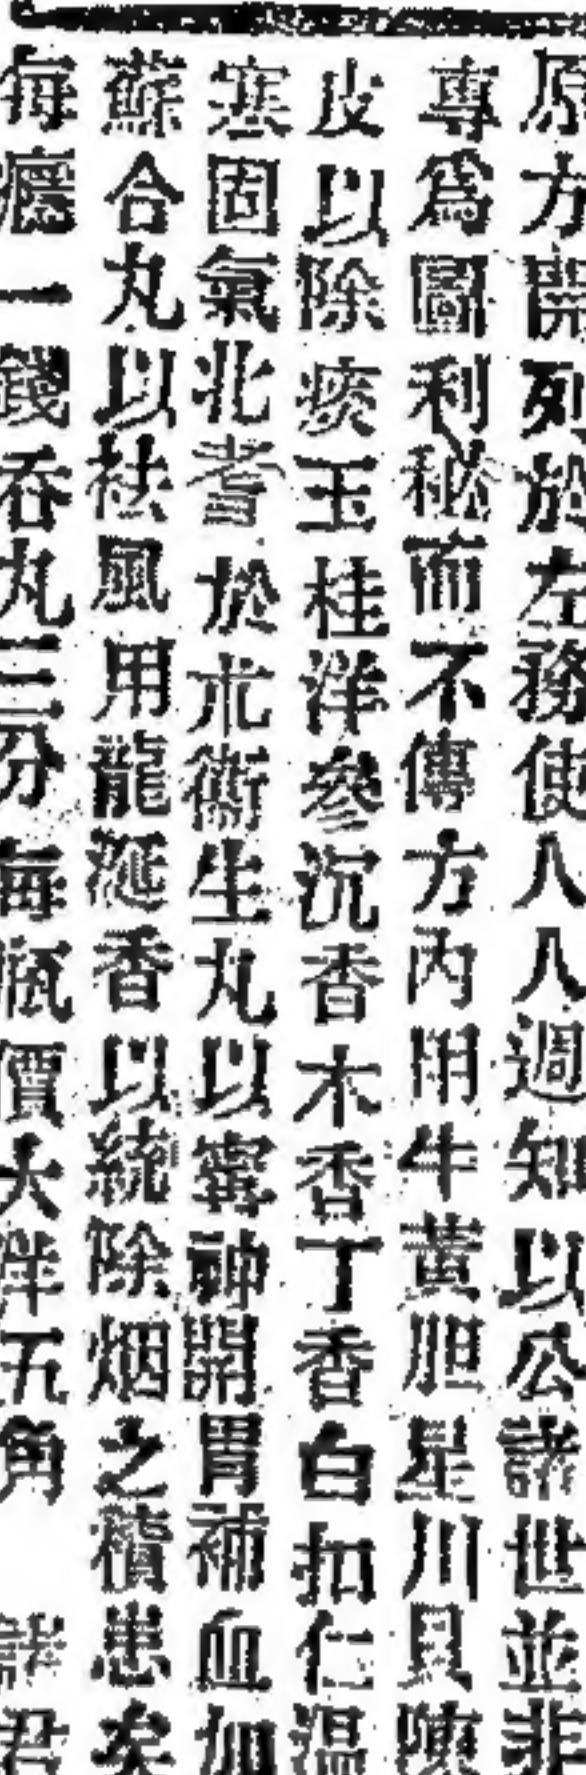 原方開列於左務使人人週知以公諸世並非
專爲圖利秘而不傳方內用牛黃胆星川貝陳
皮以除痰玉桂洋參沉香木香丁香白扣仁温
寒固氣北耆於朮衛生丸以寗神開胃補血加
蘇合丸以祛風用龍涎香以統除烟之積患矣
每癮一錢吞丸三分每瓶價大洋五角　諸君